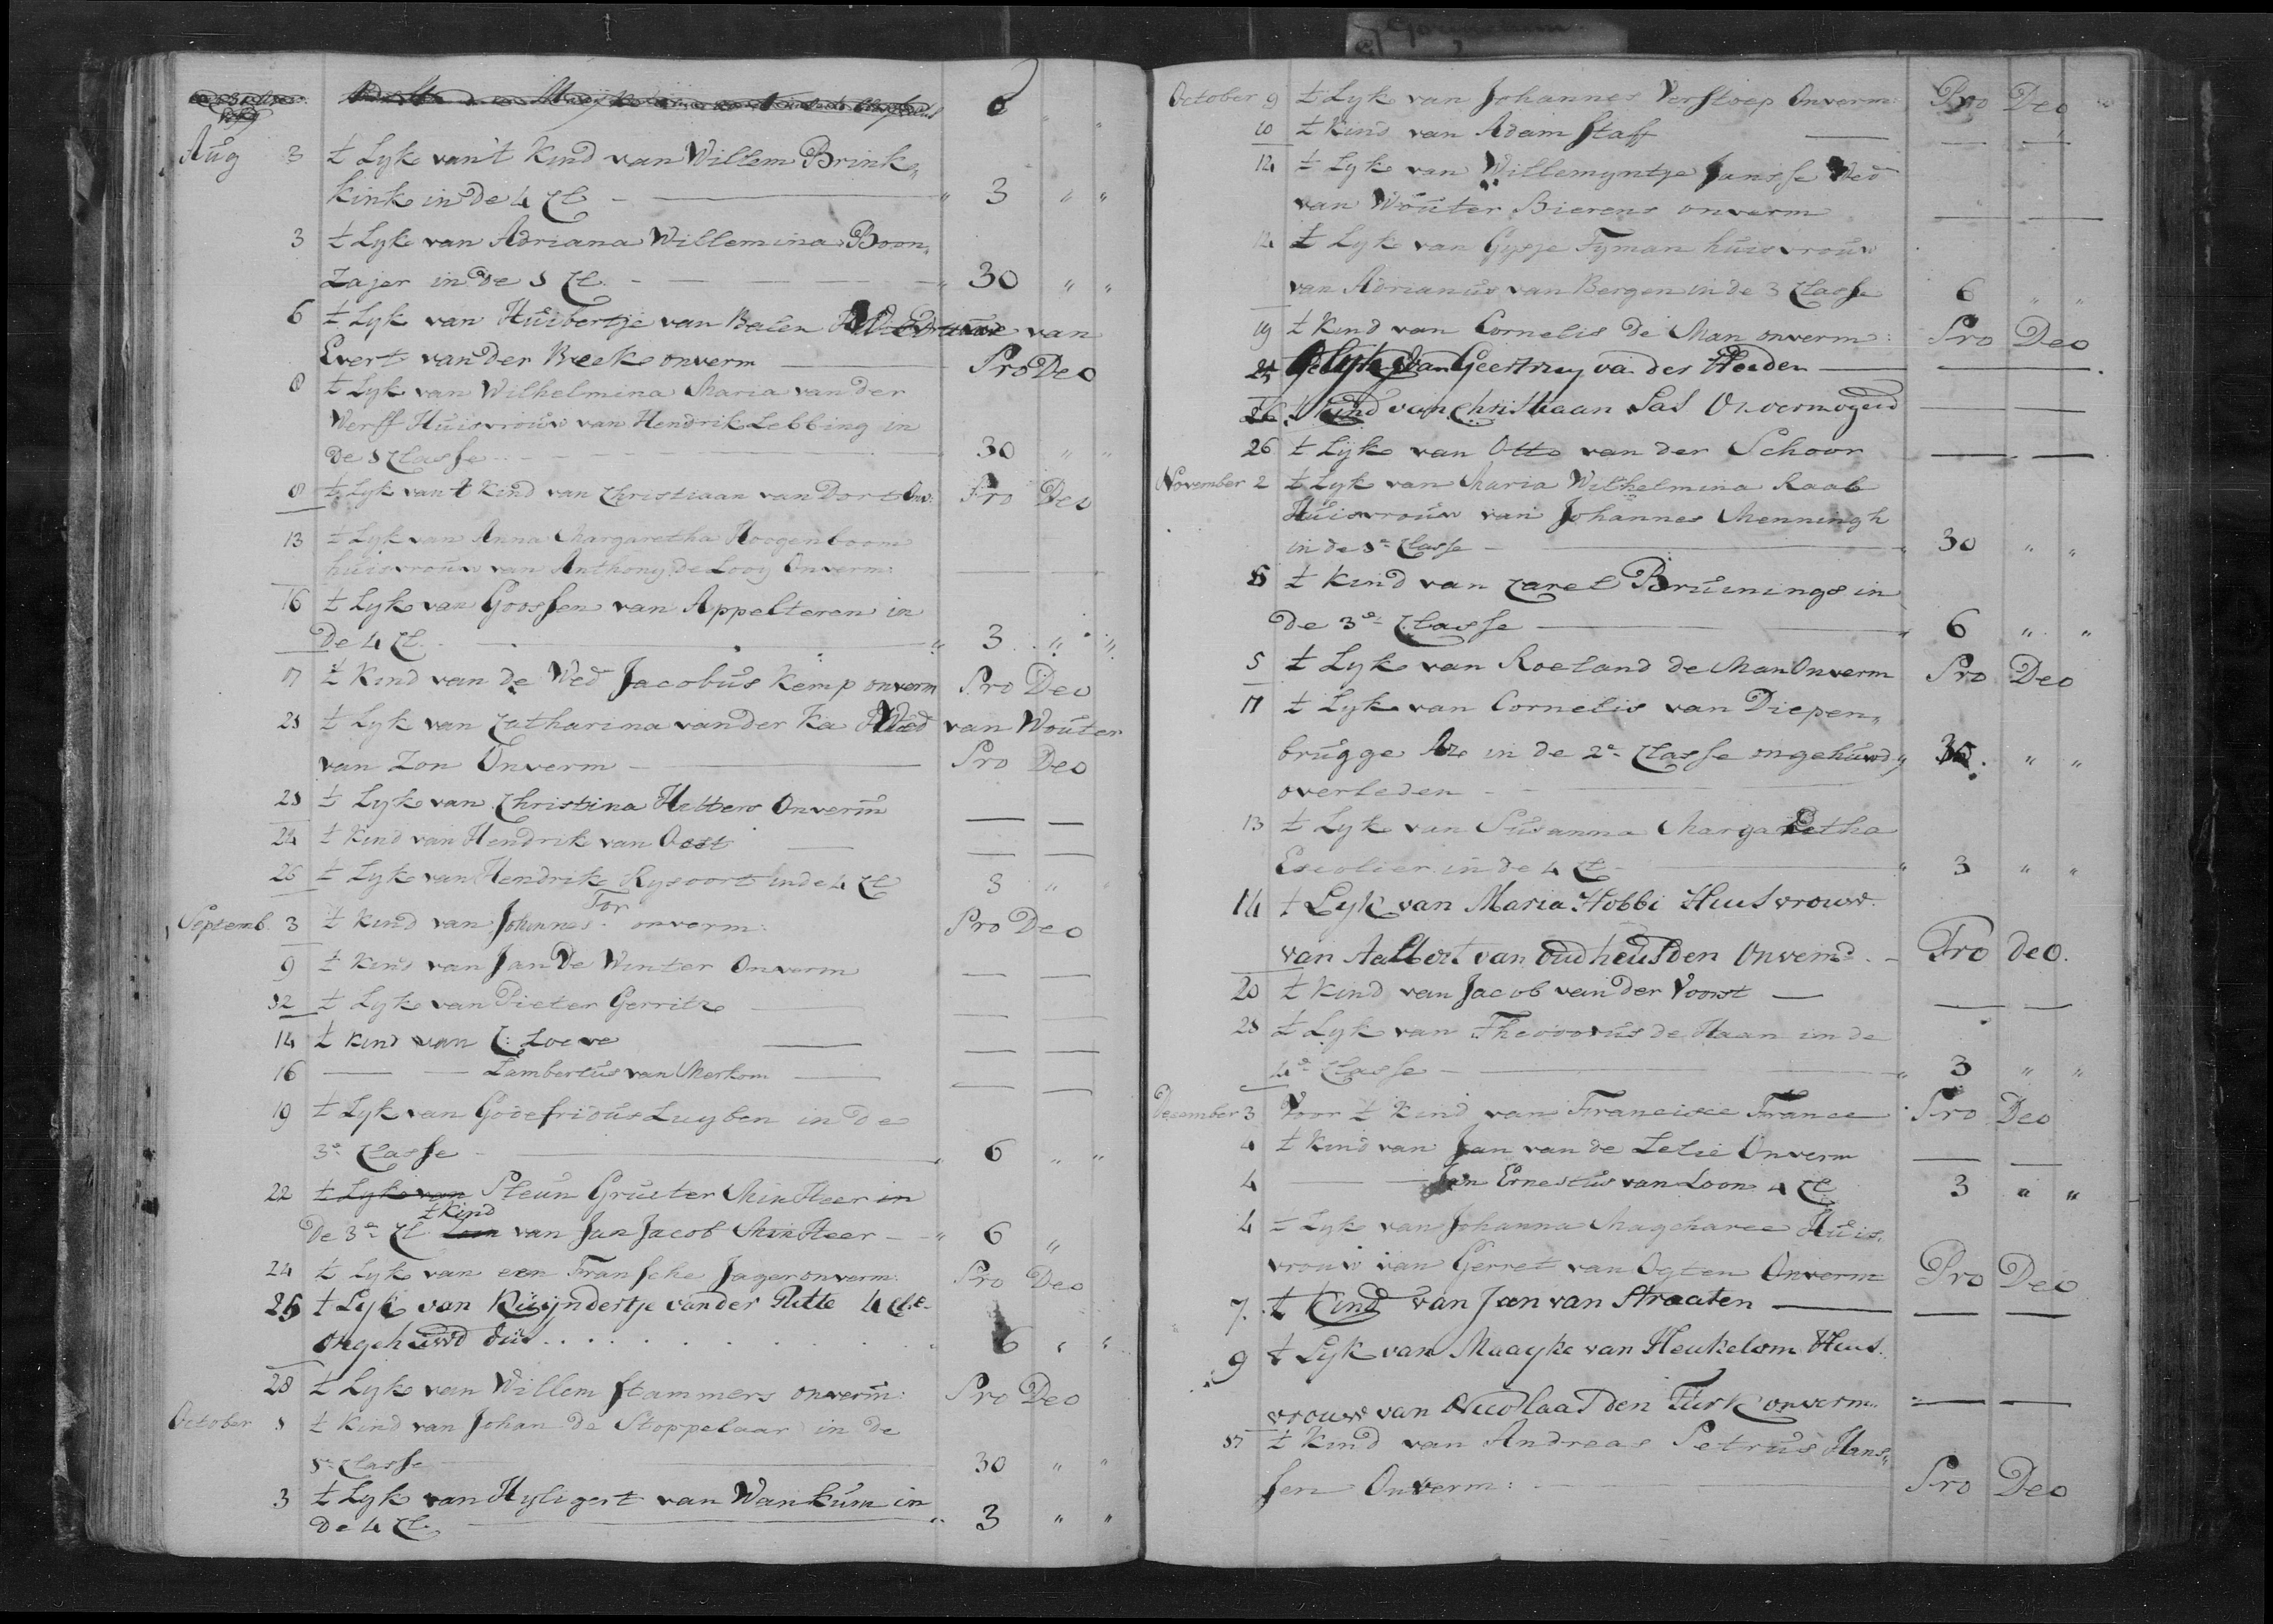 Aug 3 t Lyk van't Kind van Willem Brink„
kink in de 4 Cl " 3 " "
3 t Lyk van Adriana Willemina Boon„
Zajer in de 1 Cl. " 30 " "
6 t Lyk van Huibertje van Balen van
Evert van der Breeke onverm Pro Deo
8 t Lyk van Wilhelmina Maria van der
Werff Huisvrouw van Hendrik Lebbing in
De 1 Classe 30 " "
8 t Lyk van t Kind van Christiaan van Dort Onv: Pro Deo
13 t Lyk van Anna Margaretha Hoogenboom
huisvrouw van Anthony de Looy Onverm:
16 t Lyk van Goossen van Appelteren in
De 4 Cl. " 3 " "
17 t Kind van de Wed Jacobus Kemp onverm Pro Deo
21 t Lyk van Catharina van der Ka Wed van Wouter
van Zon Onverm Pro Deo
21 t Lyk van Christina Hetters Onverm
24 t Kind van Hendrik van Oest
26 t Lyk van Hendrik Rysoort in de 4 Cl 3 " "
Tor
Septemb. 3 t Kind van Johannes onverm: Pro Deo
9 t Kind van Jan De Winter Onverm
12 t Lyk van Pieter Gerritze
14 t Kind van C: Loeve
16 Lambertus van Merkom
19 t Lyk van Godefridus Luyben in de
3e Classe " 6 " "
22 t Lyk van Steun Gruiter Min Heer in
t Kind
De 3e Cl van Jan Jacob Min Heer " 6 "
24 t Lyk van een Fransche Jager onverm: Pro Deo
26 t Lyk van Kuijndertje van der Plitte 4 Cl.
ongehuwd dus 6 " "
28 t Lyk van Willem Stammers onverm: Pro Deo
October 1 t Kind van Johan de Stoppelaar in de
1e Classe 30 " "
3 t Lyk van Hyligert van Wankum in
De 4 Cl. " 3 " "
October 9 t Lyk van Johannes Verstoep Onverm: Pro Deo
10 t Kind van Adam Staff
12 t Lyk van Willemyntje Jansse Wed
van Wouter Bierens onverm
12 t Lyk van Gysje Tyman huisvrouw
van Adrianus van Bergen in de 3 Classe 6 " "
19 t Kind van Cornelis De Man onverm: Pro Deo
van Geertruy van der Heeden
26 t Kind van Christiaan Las Onvermogend
26 t Lyk van Otto van der Schoor
November 2 t Lyk van Maria Wilhelmina Raab
Huisvrouw van Johannes Menningh
in de 1e Classe " 30 " "
5 t Kind van Carel Bruinings in
De 3e Classe " 6 " "
5 t Lyk van Roeland de Man Onverm Pro Deo
11 t Lyk van Cornelis van Diepen„
brugge Az in de 2e Classe ongehuwd " " "
overleden
13 t Lyk van Susanna Margaretha
Escolier in de 4 Cl " 3 " "
14 t Lyk van Maria Hobbi Huisvrouw
van Aalbert van Oudheusden Onverm: Pro deo.
20 t Kind van Jacob van der Voorst
21 t Lyk van Theodorus de Haan in de
4e Classe " 3 " "
December 3 Voor t Kind van Francisce France Pro Deo
4 t Kind van Jan van de Lelie Onverm
4 Jan Ernestus van Loon 4 Cl 3 " "
4 t Lyk van Johanna Magcharee Huis.
vrouw van Gerret van Ogten Onverm Pro Deo
7. t Kind van Jan van Straaten
9 t Lyk van Maayke van Heukelom Huis.
vrouw van Nicolaas den Turk onverm.
17 t Kind van Andreas Petrus Hans„
sen Onverm: Pro Deo